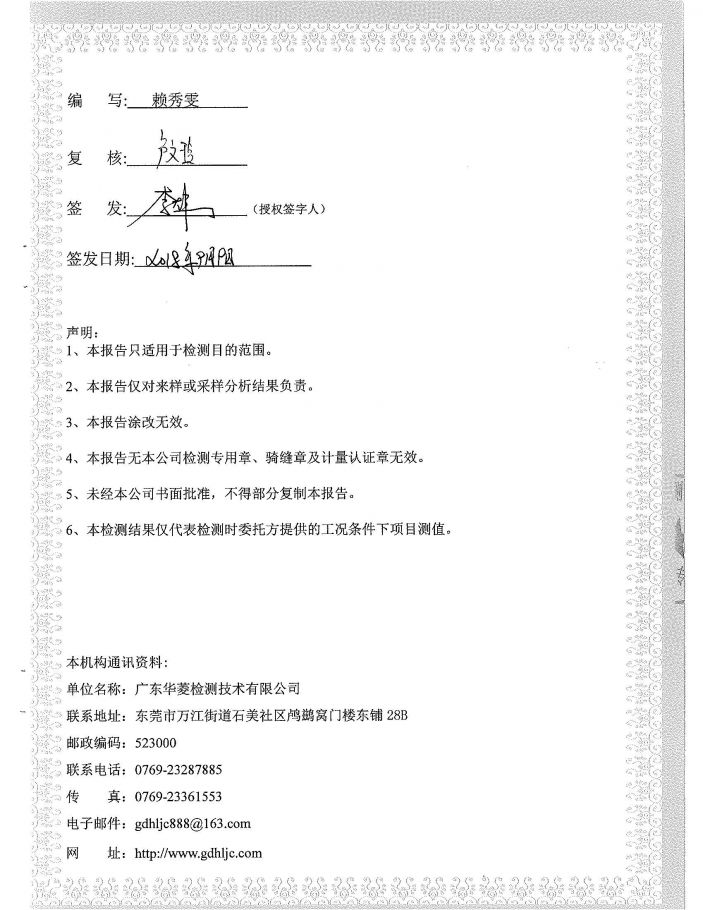 编 写: 赖秀雯
复 核:
签 发: （授权签字人）
签发日期: 2018年9月19日
声明：
1、本报告只适用于检测目的范围。
2、本报告仅对来样或采样分析结果负责。
3、本报告涂改无效。
4、本报告无本公司检测专用章、骑缝章及计量认证章无效。
5、未经本公司书面批准，不得部分复制本报告。
6、本检测结果仅代表检测时委托方提供的工况条件下项目测值。
本机构通讯资料：
单位名称：广东华菱检测技术有限公司
联系地址：东莞市万江街道石美社区鸬鹚窝门楼东铺 28B
邮政编码：523000
联系电话：0769-23287885
传 真：0769-23361553
电子邮件：gdhljc888@163.com
网 址：http://www.gdhljc.com